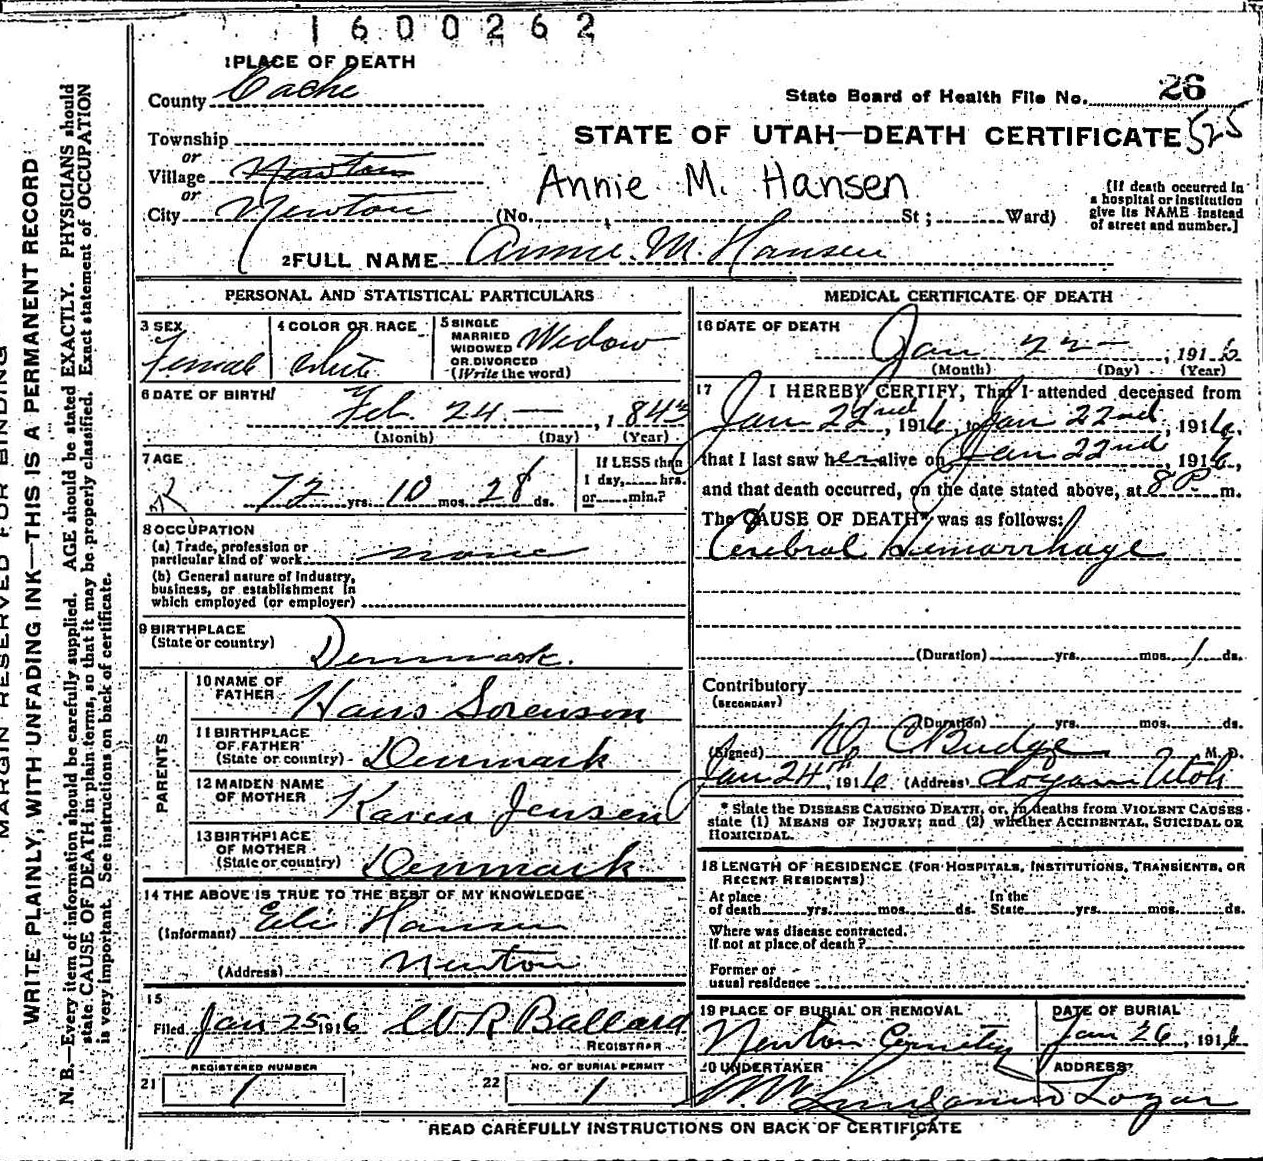 1600262
1 PLACE OF DEATH
County Cache
State Board of Health File No. 26
525
Township
STATE OF UTAH—DEATH CERTIFICATE
or
Village Newton
Annie M. Hansen
or
City Newton (No. , St; Ward)
[If death occurred in
a hospital or institution
give its NAME instead
of street and number.]
2 FULL NAME Annie M. Hansen
PERSONAL AND STATISTICAL PARTICULARS
3 SEX
Female
4 COLOR OR RACE
White
5 SINGLE
MARRIED
WIDOWED
OR DIVORCED
(Write the word)
Widow
6 DATE OF BIRTH
Feb. 24 — , 1843
(Month) (Day) (Year)
7 AGE
72 yrs. 10 mos. 28 ds.
If LESS than
1 day, hrs.
or min.?
8 OCCUPATION
(a) Trade, profession or
particular kind of work none
(b) General nature of industry,
business, or establishment in
which employed (or employer)
9 BIRTHPLACE
(State or country)
Denmark.
PARENTS
10 NAME OF
FATHER
Hans Sorenson
11 BIRTHPLACE
OF FATHER
(State or country) Denmark
12 MAIDEN NAME
OF MOTHER
Karen Jensen
13 BIRTHPLACE
OF MOTHER
(State or country) Denmark
14 THE ABOVE IS TRUE TO THE BEST OF MY KNOWLEDGE
(Informant) Hansen
(Address) Newton
15
Filed Jan 25 1916 W R Ballard
REGISTRAR
21 REGISTERED NUMBER
1
22 NO. OF BURIAL PERMIT
1
MEDICAL CERTIFICATE OF DEATH
16 DATE OF DEATH
Jan 22 — , 1916
(Month) (Day) (Year)
17 I HEREBY CERTIFY, That I attended deceased from
Jan 22nd, 1916, to Jan 22nd, 1916,
that I last saw her alive on Jan 22nd, 1916,
and that death occurred, on the date stated above, at 8 P m.
The CAUSE OF DEATH* was as follows:
Cerebral Hemorrhage
(Duration) yrs. mos. 1 ds.
Contributory
(SECONDARY)
(Duration) yrs. mos. ds.
(Signed) D C Budge M. D.
Jan 24th, 1916 (Address) Logan Utah
* State the DISEASE CAUSING DEATH, or, in deaths from VIOLENT CAUSES
state (1) MEANS OF INJURY; and (2) whether ACCIDENTAL, SUICIDAL OR
HOMICIDAL.
18 LENGTH OF RESIDENCE (FOR HOSPITALS, INSTITUTIONS, TRANSIENTS, OR
RECENT RESIDENTS)
At place
of death yrs. mos. ds.
In the
State yrs. mos. ds.
Where was disease contracted.
If not at place of death?
Former or
usual residence
19 PLACE OF BURIAL OR REMOVAL
Newton Cemetery
DATE OF BURIAL
Jan 26, 1916
20 UNDERTAKER
ADDRESS
Logan
READ CAREFULLY INSTRUCTIONS ON BACK OF CERTIFICATE
MARGIN RESERVED FOR BINDING
WRITE PLAINLY, WITH UNFADING INK—THIS IS A PERMANENT RECORD
N. B.—Every item of information should be carefully supplied. AGE should be stated EXACTLY. PHYSICIANS should
state CAUSE OF DEATH in plain terms, so that it may be properly classified. Exact statement of OCCUPATION
is very important. See instructions on back of certificate.